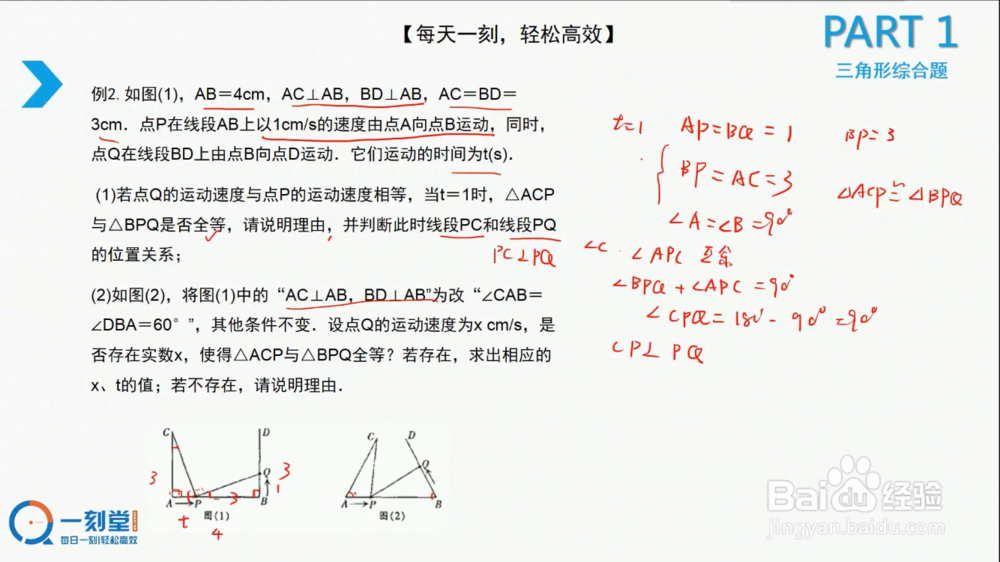 【每天一刻，轻松高效】
PART 1
三角形综合题
例2. 如图(1)，AB＝4cm，AC⊥AB，BD⊥AB，AC＝BD＝
3cm．点P在线段AB上以1cm/s的速度由点A向点B运动，同时，
点Q在线段BD上由点B向点D运动．它们运动的时间为t(s)．
(1)若点Q的运动速度与点P的运动速度相等，当t＝1时，△ACP
与△BPQ是否全等，请说明理由，并判断此时线段PC和线段PQ
的位置关系；
PC⊥PQ
(2)如图(2)，将图(1)中的“AC⊥AB，BD⊥AB”为改“∠CAB＝
∠DBA＝60°”，其他条件不变．设点Q的运动速度为x cm/s，是
否存在实数x，使得△ACP与△BPQ全等？若存在，求出相应的
x、t的值；若不存在，请说明理由．
t=1 AP=BQ=1 BP=3
BP=AC=3
△ACP≌△BPQ
∠A=∠B=90°
∠C. ∠APC 互余
∠BPQ+∠APC=90°
∠CPQ=180-90°=90°
CP⊥PQ
C D
3 Q 3
3 1
A P B
t 图(1)
4
C D
Q
A P B
图(2)
一刻堂
每日一刻轻松高效
Baidu经验
jingyan.baidu.com